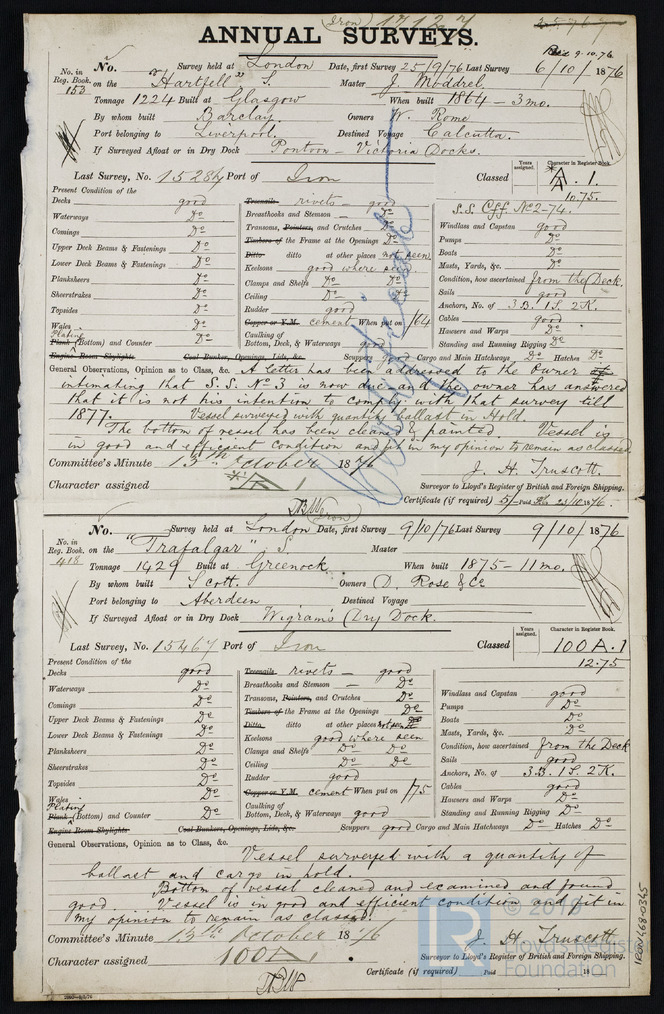 (Iron) 17127
ANNUAL SURVEYS.
Rec'd 9.10.76
No. Survey held at London Date, first Survey 25/9/76 Last Survey 6/10/ 1876
No. in Reg. Book. 153 on the "Hartfell" S. Master J. Moddrel.
Tonnage 1224 Built at Glasgow When built 1864 - 3 mo.
By whom built Barclay. Owners W. Rome
Port belonging to Liverpool. Destined Voyage Calcutta.
If Surveyed Afloat or in Dry Dock Pontoon - Victoria Docks.
Last Survey, No. 15284 Port of Iron Classed Years assigned. Character in Register Book. A.1. 10.75.
Present Condition of the
Decks good
Waterways Do
Comings Do
Upper Deck Beams & Fastenings Do
Lower Deck Beams & Fastenings Do
Planksheers Do
Sheerstrakes Do
Topsides Do
Wales Do
Plating
Plank (Bottom) and Counter Do
Engine Room Skylights Coal Bunker, Openings, Lids, &c.
Treenails rivets - good
Breasthooks and Stemson - Do
Transoms, Pointers, and Crutches Do
Timbers of the Frame at the Openings Do
Ditto ditto at other places not seen.
Keelsons good where seen
Clamps and Shelfs Do Do
Ceiling Do Do
Rudder good
Copper or Y.M. cement When put on /64
Caulking of Bottom, Deck, & Waterways good
Scuppers good Cargo and Main Hatchways Do Hatches Do
S.S. Cff No 2-74.
Windlass and Capstan good
Pumps Do
Boats Do
Masts, Yards, &c. Do
Condition, how ascertained from the Deck.
Sails good
Anchors, No. of 3 B. 1 S. 2 K.
Cables good
Hawsers and Warps Do
Standing and Running Rigging Do
General Observations, Opinion as to Class, &c. A letter has been addressed to the Owner
intimating that S.S. No 3 is now due and the owner has answered
that it is not his intention to comply with that survey till
1877. Vessel surveyed with quantity ballast in Hold.
The bottom of vessel has been cleaned & painted. Vessel is
in good and efficient condition and fit in my opinion to remain as classed.
Committee's Minute 13th October 1876 J. H. Truscott.
Character assigned A 1 Surveyor to Lloyd's Register of British and Foreign Shipping.
Certificate (if required) 5/-
(Iron)
No. Survey held at London Date, first Survey 9/10/76 Last Survey 9/10/ 1876
No. in Reg. Book. 418 on the "Trafalgar" S. Master
Tonnage 1429 Built at Greenock When built 1875 - 11 mo.
By whom built Scott. Owners D. Rose & Co
Port belonging to Aberdeen Destined Voyage
If Surveyed Afloat or in Dry Dock Wigrams (Dry Dock.
Last Survey, No. 15467 Port of Iron Classed Years assigned. Character in Register Book. 100 A.1 12.75
Present Condition of the
Decks good
Waterways Do
Comings Do
Upper Deck Beams & Fastenings Do
Lower Deck Beams & Fastenings Do
Planksheers Do
Sheerstrakes Do
Topsides Do
Wales Do
Plating
Plank (Bottom) and Counter Do
Engine Room Skylights Coal Bunkers, Openings, Lids, &c.
Treenails rivets - good
Breasthooks and Stemson - Do
Transoms, Pointers, and Crutches Do
Timbers of the Frame at the Openings Do
Ditto ditto at other places not seen
Keelsons good where seen
Clamps and Shelfs Do Do
Ceiling Do Do
Rudder good
Copper or Y.M. cement When put on /75
Caulking of Bottom, Deck, & Waterways good
Scuppers good Cargo and Main Hatchways Do Hatches Do
Windlass and Capstan good
Pumps Do
Boats Do
Masts, Yards, &c. Do
Condition, how ascertained from the Deck
Sails good
Anchors, No. of 3 B. 1 S. 2 K.
Cables good
Hawsers and Warps Do
Standing and Running Rigging Do
General Observations, Opinion as to Class, &c.
Vessel surveyed with a quantity of
ballast and cargo in hold.
Bottom of vessel cleaned and examined and found
good. Vessel is in good and efficient condition and fit in
my opinion to remain as classed.
Committee's Minute 13th October 1876 J. H. Truscott.
Character assigned 100 A 1 Surveyor to Lloyd's Register of British and Foreign Shipping.
Certificate (if required) Paid 18
© 2019
Lloyd's Register
Foundation
IRON468-0345